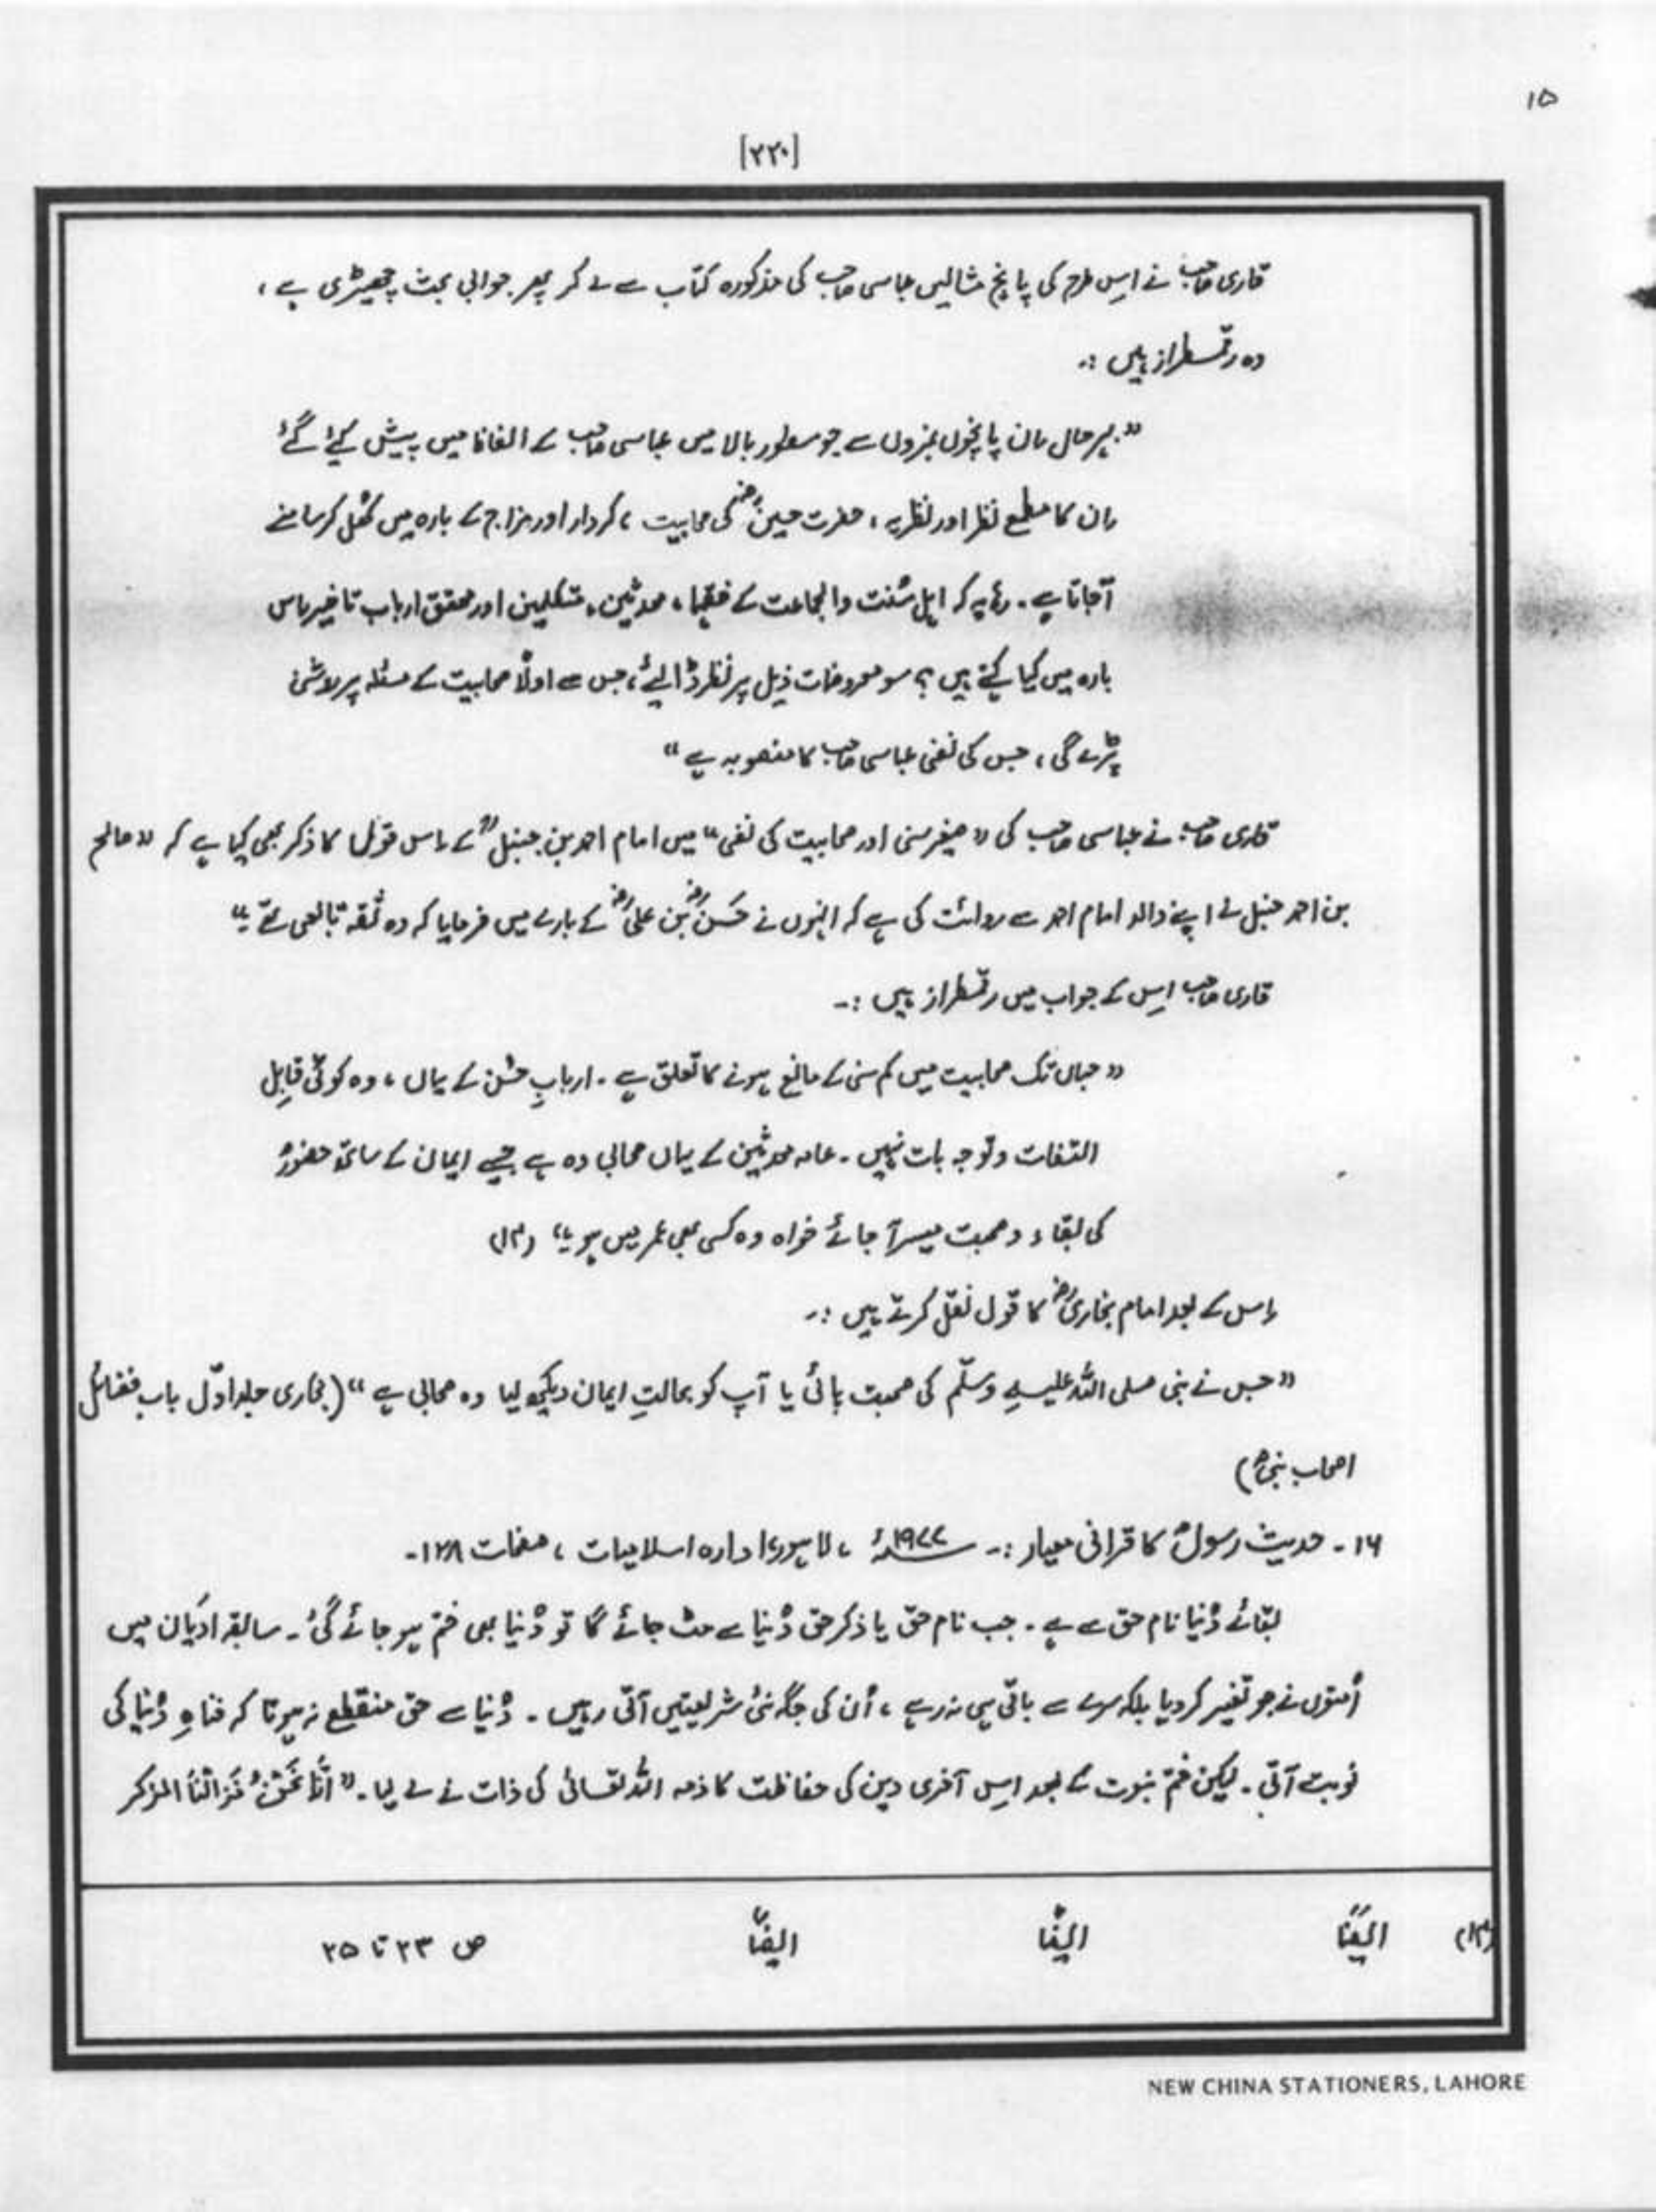 ۱۵
[۲۲۰]
قاری صاحب نے اِس طرح کی پانچ مثالیں عباسی صاحب کی مذکورہ کتاب سے لے کر پھر جوابی بحث چھیڑی ہے،
وہ رقمطراز ہیں :۔
"بہرحال اِن پانچوں نمبروں سے جو سطور بالا میں عباسی صاحب کے الفاظ میں پیش کیے گئے
اِن کا مطمع نظر اور نظریہ، حضرت حسینؓ کی صحابیت، کردار اور مزاج کے بارہ میں کھُل کر سامنے
آجاتا ہے۔ رہا یہ کہ اہل سُنت والجماعت کے فقہا، محدثین، متکلمین اور محقق ارباب تاریخ اِس
بارہ میں کیا کہتے ہیں؟ سو معروضات ذیل پر نظر ڈالیئے، جس سے اولاً صحابیت کے مسئلہ پر روشنی
پڑے گی، جس کی نفی عباسی صاحب کا منصوبہ ہے"
قاری صاحب نے عباسی صاحب کی "صغیر سنی اور صحابیت کی نفی" میں امام احمد بن حنبلؒ کے اِس قول کا ذکر بھی کیا ہے کہ "صالح
بن احمد حنبل نے اپنے والد امام احمد سے روائت کی ہے کہ انہوں نے حَسَنؓ بن علیؓ کے بارے میں فرمایا کہ وہ ثقہ تابعی تھے۔"
قاری صاحب اِس کے جواب میں رقمطراز ہیں :۔
"جہاں تک صحابیت میں کم سنی کے مانع ہونے کا تعلق ہے۔ اربابِ فن کے یہاں، وہ کوئی قابلِ
التفات و توجہ بات نہیں۔ عامہ محدثین کے یہاں صحابی وہ ہے جسے ایمان کے ساتھ حضورؐ
کی لقاء و صحبت میسر آ جائے خواہ وہ کسی بھی عمر میں ہو۔" (۱۳)
اِس کے بعد امام بخاریؒ کا قول نقل کرتے ہیں :۔
"جس نے نبی صلی اللہ علیہ وسلّم کی صحبت پائی یا آپ کو بحالتِ ایمان دیکھ لیا وہ صحابی ہے" (بخاری جلد اوّل باب فضائل
اصحاب نبیؐ)
۱۶۔ حدیث رسولؐ کا قرانی معیار :۔ ۱۹۷۷ء، لاہور، ادارہ اسلامیات، صفحات ۱۲۸۔
بقائے دُنیا نام حق سے ہے۔ جب نام حق یا ذکر حق دُنیا سے مٹ جائے گا تو دُنیا بھی ختم ہو جائے گی۔ سابقہ ادیان میں
اُمتوں نے جو تغیر کر دیا بلکہ سرے سے باقی ہی نہ رہے، اُن کی جگہ نئی شریعتیں آتی رہیں۔ دُنیا سے حق منقطع نہ ہوتا کہ فناءِ دُنیا کی
نوبت آتی۔ لیکن ختم نبوت کے بعد اِس آخری دین کی حفاظت کا ذمہ اللہ تعالیٰ کی ذات نے لے لیا۔ "اَنَّا نَحْنُ نَزالْنَا الذکر
(۱۳) ایضًا ایضًا ایضًا ص ۲۳ تا ۲۵
NEW CHINA STATIONERS, LAHORE